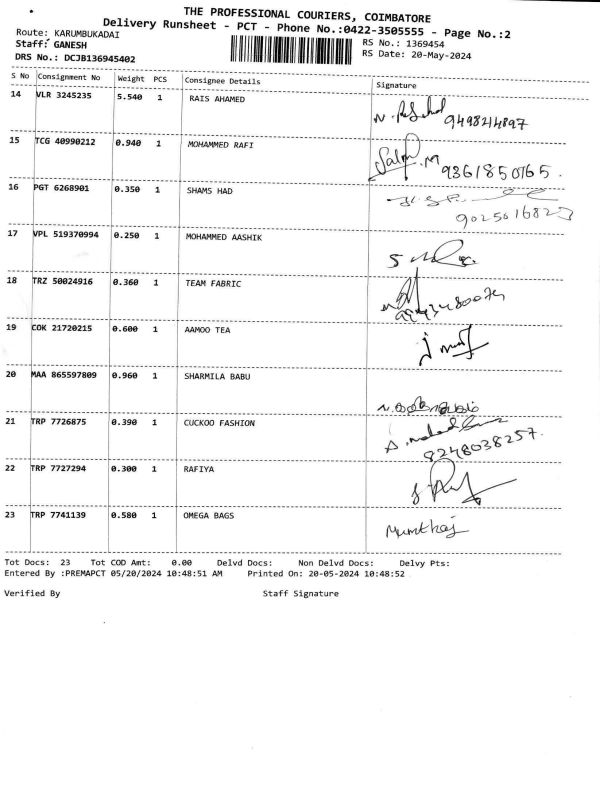 THE PROFESSIONAL COURIERS, COIMBATORE
Delivery Runsheet - PCT - Phone No.:0422-3505555 - Page No.:2
Route: KARUMBUKADAI
RS No.: 1369454
Staff: GANESH
RS Date: 20-May-2024
DRS No.: DCJB136945402
S No Consignment No Weight PCS Consignee Details Signature
14 VLR 3245235 5.540 1 RAIS AHAMED
15 TCG 40990212 0.940 1 MOHAMMED RAFI
9361850765.
16 PGT 6268901 0.350 1 SHAMS HAD
17 VPL 519370994 0.250 1 MOHAMMED AASHIK
18 TRZ 50024916 0.360 1 TEAM FABRIC
19 COK 21720215 0.600 1 AAMOO TEA
20 MAA 865597809 0.960 1 SHARMILA BABU
21 TRP 7726875 0.390 1 CUCKOO FASHION
8248038257.
22 TRP 7727294 0.300 1 RAFIYA
23 TRP 7741139 0.580 1 OMEGA BAGS
Mumthaj
Tot Docs: 23 Tot COD Amt: 0.00 Delvd Docs: Non Delvd Docs: Delvy Pts:
Entered By :PREMAPCT 05/20/2024 10:48:51 AM Printed On: 20-05-2024 10:48:52
Verified By Staff Signature